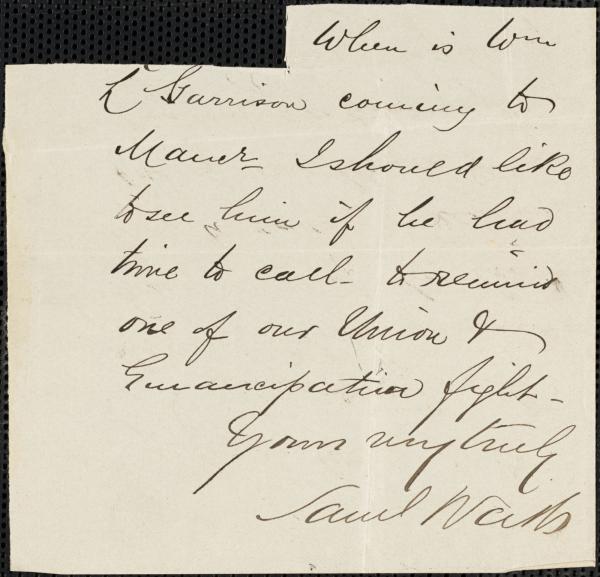 When is Wm
L Garrison coming to
Mancr— I should like
to see him if he had
time to call— to remind
one of our Union &
Emancipation fight—
Yours very truly
Saml Watts